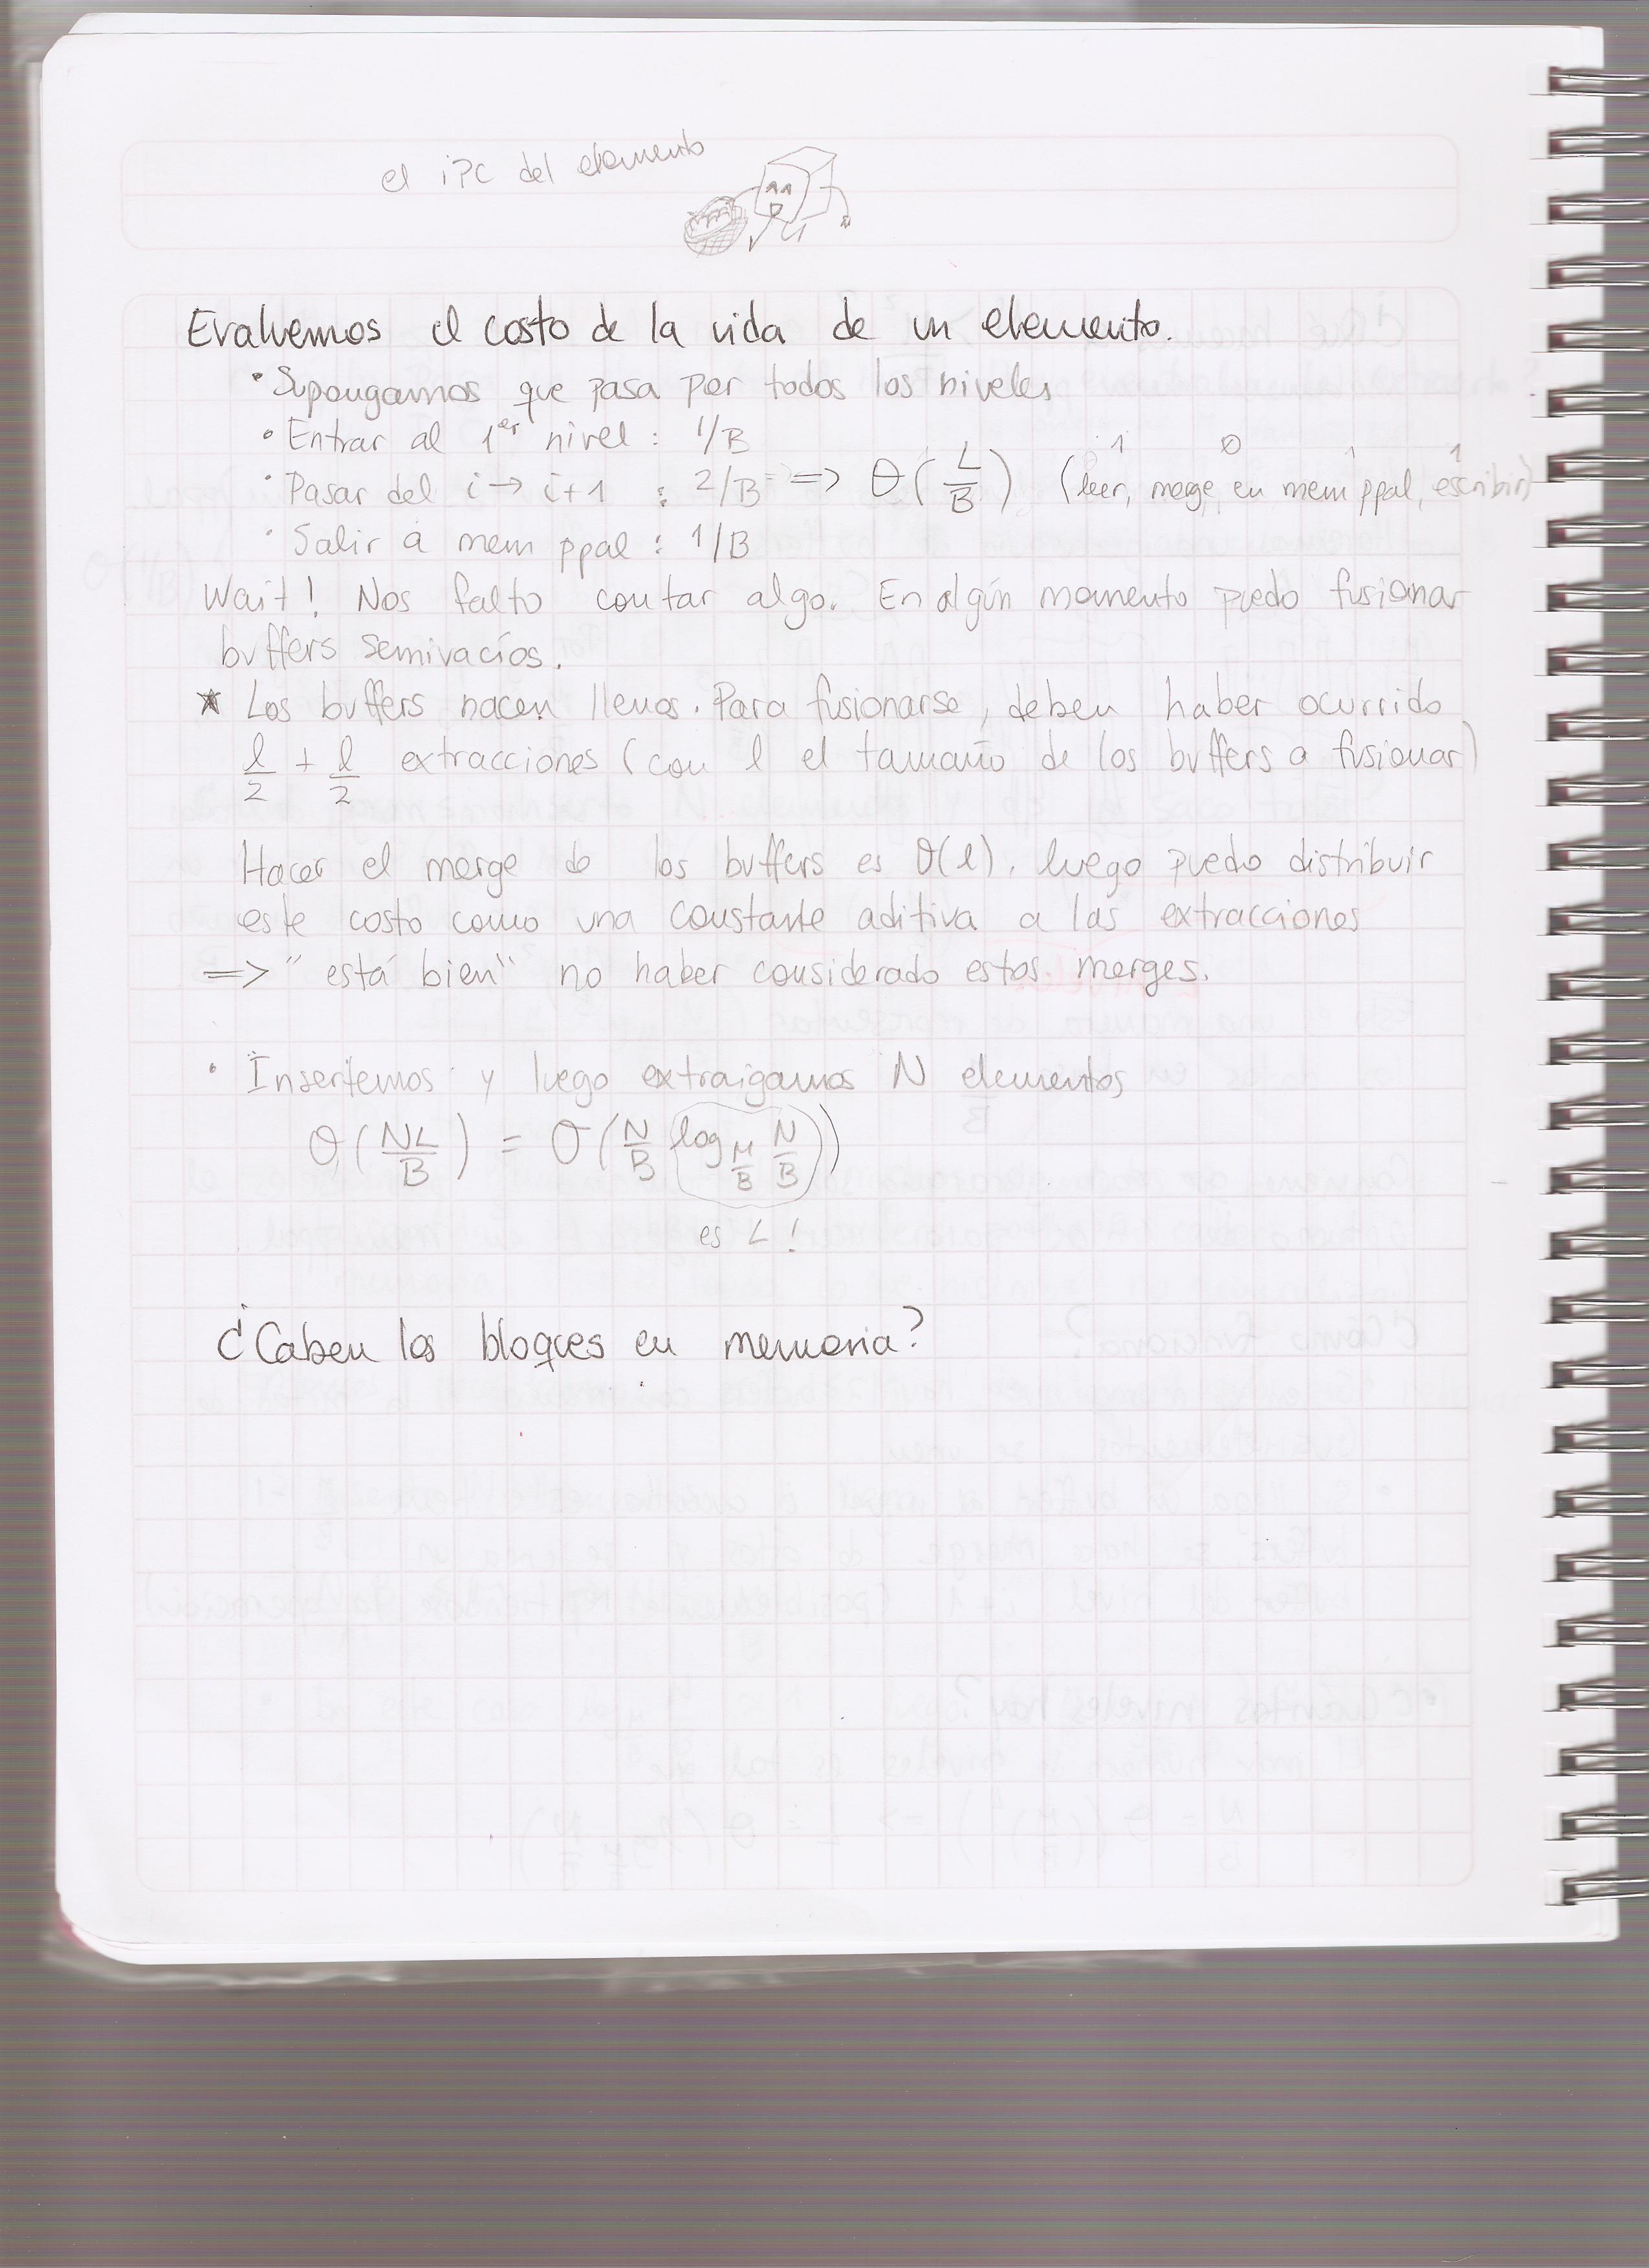 el iPC del elemento
Evaluemos el costo de la vida de un elemento.
• Supongamos que pasa por todos los niveles
• Entrar al 1er nivel : 1/B
• Pasar del i → i+1 : 2/B => θ(L/B) (leer, merge, en mem ppal, escribir)
1 0 1 1
• Salir a mem ppal : 1/B
Wait! Nos falto contar algo. En algún momento puedo fusionar
buffers semivacíos.
* Los buffers nacen llenos. Para fusionarse, deben haber ocurrido
l/2 + l/2 extracciones (con l el tamaño de los buffers a fusionar)
Hacer el merge de los buffers es θ(l). luego puedo distribuir
este costo como una constante aditiva a las extracciones
=> "está bien" no haber considerado estos merges.
• Insertemos y luego extraigamos N elementos
θ(NL/B) = O(N/B log M/B N/B)
es L!
¿Caben los bloques en memoria?